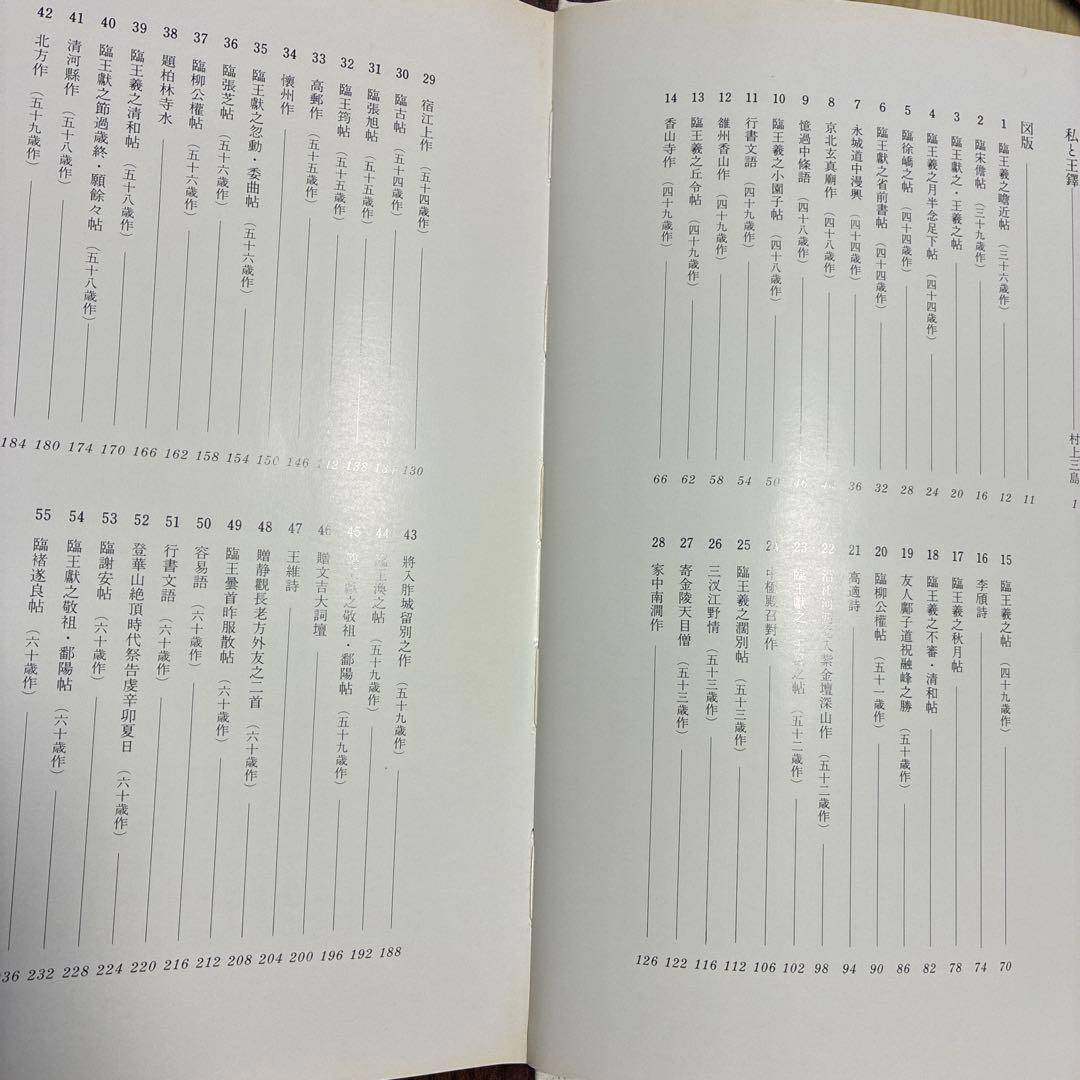 私と王鐸 村上三島 1
図版 11
1 臨王羲之瞻近帖（三十六歳作） 12
2 臨宋儋帖（三十九歳作） 16
3 臨王獻之・王羲之帖 20
4 臨王羲之月半念足下帖（四十四歳作） 24
5 臨徐嶠之帖（四十四歳作） 28
6 臨王獻之省前書帖（四十四歳作） 32
7 永城道中漫興（四十四歳作） 36
8 京北玄真廟作（四十八歳作）
9 憶過中條語（四十八歳作） 46
10 臨王羲之小園子帖（四十八歳作） 50
11 行書文語（四十九歳作） 54
12 雒州香山作（四十九歳作） 58
13 臨王羲之丘令帖（四十九歳作） 62
14 香山寺作（四十九歳作） 66
15 臨王羲之帖（四十九歳作） 70
16 李頎詩 74
17 臨王羲之秋月帖 78
18 臨王羲之不審・清和帖 82
19 友人鄺子道祝融峰之勝（五十歳作） 86
20 臨柳公權帖（五十一歳作） 90
21 高適詩 94
22 紫金壇深山作（五十二歳作） 98
23 臨王獻之 之帖（五十二歳作） 102
24 中極殿召對作 106
25 臨王羲之濶別帖（五十三歳作） 112
26 三汊江野情（五十三歳作） 116
27 寄金陵天目僧（五十三歳作） 122
28 家中南澗作 126
29 宿江上作（五十四歳作） 130
30 臨古帖（五十四歳作） 134
31 臨張旭帖（五十五歳作） 138
32 臨王筠帖（五十五歳作） 142
33 高郵作（五十五歳作） 146
34 懷州作 150
35 臨王獻之忽動・委曲帖（五十六歳作） 154
36 臨張芝帖（五十六歳作） 158
37 臨柳公權帖（五十六歳作） 162
38 題柏林寺水 166
39 臨王羲之清和帖（五十八歳作） 170
40 臨王獻之節過歳終・願餘々帖（五十八歳作） 174
41 清河縣作（五十八歳作） 180
42 北方作（五十九歳作） 184
43 將入胙城留別之作（五十九歳作） 188
44 臨王渙之帖（五十九歳作） 192
45 獻之敬祖・鄱陽帖（五十九歳作） 196
46 贈文吉大詞壇 200
47 王維詩 204
48 贈静觀長老方外友之二首（六十歳作） 208
49 臨王曇首昨服散帖（六十歳作） 212
50 容易語（六十歳作） 216
51 行書文語（六十歳作） 220
52 登華山絶頂時代祭告虔辛卯夏日（六十歳作） 224
53 臨謝安帖（六十歳作） 228
54 臨王獻之敬祖・鄱陽帖（六十歳作） 232
55 臨褚遂良帖（六十歳作）